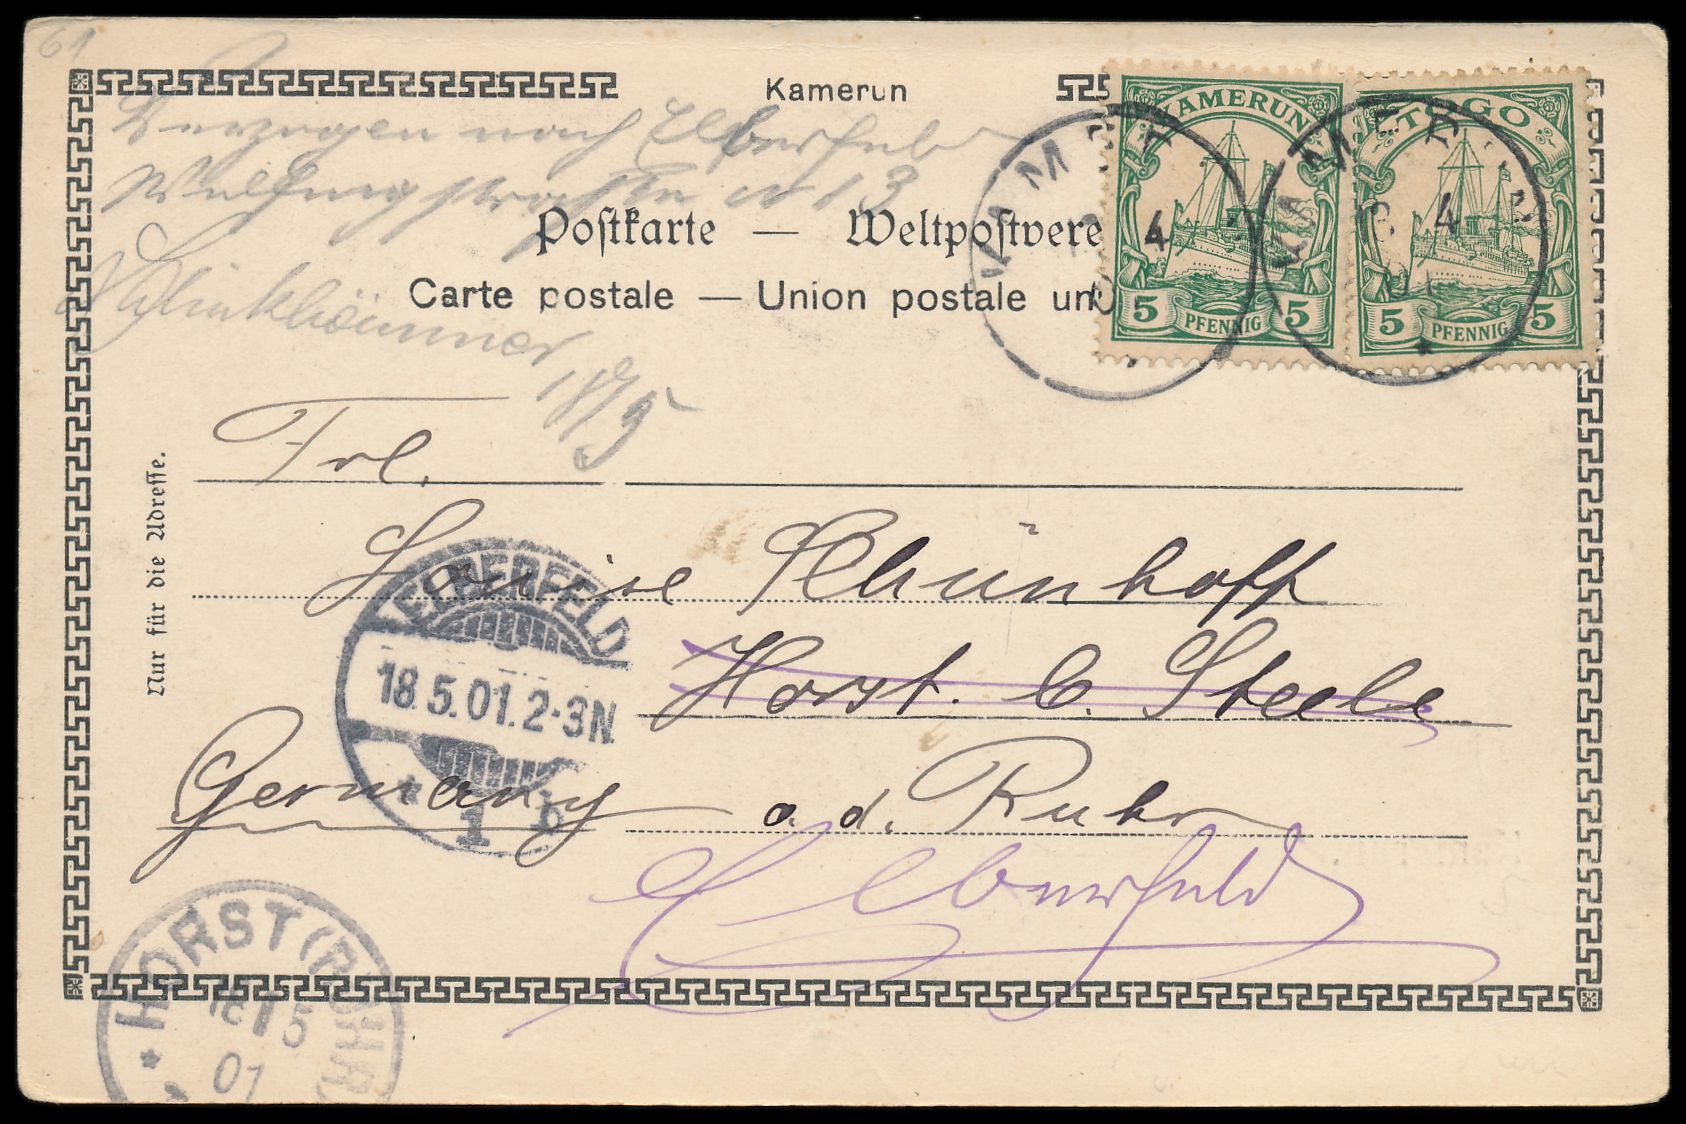 61
Kamerun
Verzogen nach Elberfeld
Postkarte — Weltpostvere
Carte postale — Union postale un
18/5
KAMERUN
5 PFENNIG 5
TOGO
5 PFENNIG 5
KAMERUN
4
KAMERUN
4
01
Nur für die Adresse.
Frl.
Louise
Horst. b. Steele
Germany a. d. Ruhr
Elberfeld
ELBERFELD
18.5.01.2-3N.
* 1 b
HORST (RUHR)
18 5
01